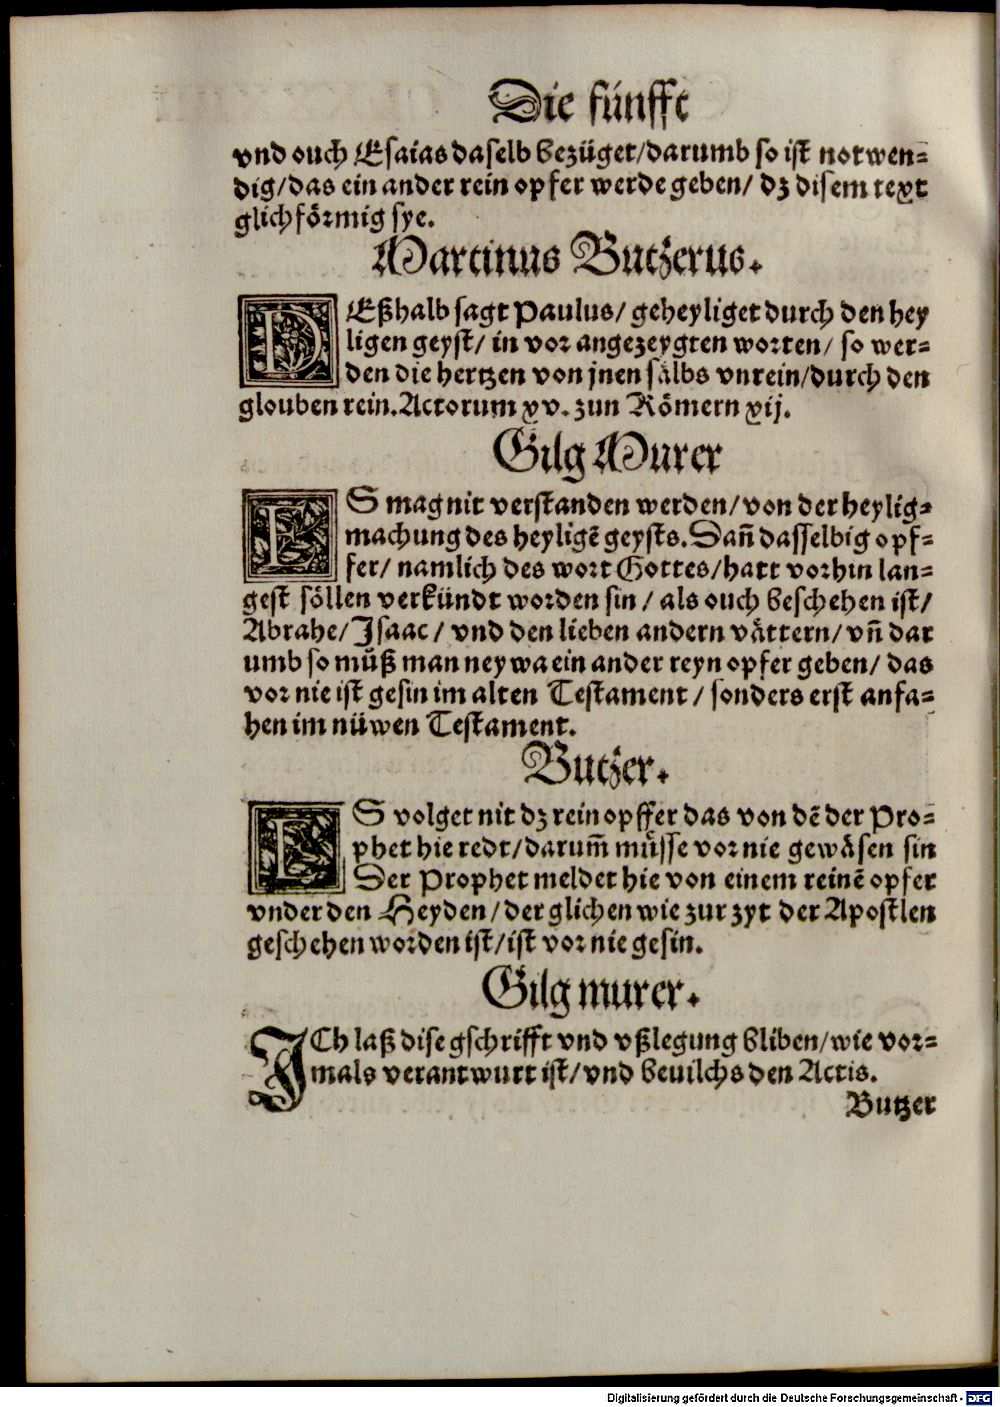 Die fünfft
vnd ouch Esaias daselb bezüget/darumb so ist notwen-
dig/das ein ander rein opfer werde geben/ dz disem text
glichförmig sye.
Martinus Butzerus.
DEßhalb sagt Paulus/ geheyliget durch den hey
ligen geyst/ in vor angezeygten worten/ so wer-
den die hertzen von jnen sälbs vnrein/durch den
glouben rein. Actorum xv. zun Römern xij.
Gilg Murer
ES mag nit verstanden werden/von der heylig-
machung des heyligē geysts. Dañ dasselbig opf-
fer/ namlich des wort Gottes/hatt vorhin lan-
gest söllen verkündt worden sin / als ouch beschehen ist/
Abrahe/ Isaac/ vnd den lieben andern vättern/ vñ dar
umb so muͦß man neywa ein ander reyn opfer geben/ das
vor nie ist gesin im alten Testament / sonders erst anfa-
hen im nüwen Testament.
Butzer.
ES volget nit dz rein opffer das von dē der Pro-
phet hie redt/darum̃ müsse vor nie gewäsen sin
Der Prophet meldet hie von einem reinē opfer
vnder den Heyden/der glichen wie zur zyt der Apostlen
geschehen worden ist/ist vor nie gesin.
Gilg murer.
ICh laß dise gschrifft vnd vßlegung bliben/wie vor-
mals verantwurt ist/vnd beuilchs den Actis.
Butzer
Digitalisierung gefördert durch die Deutsche Forschungsgemeinschaft - DFG